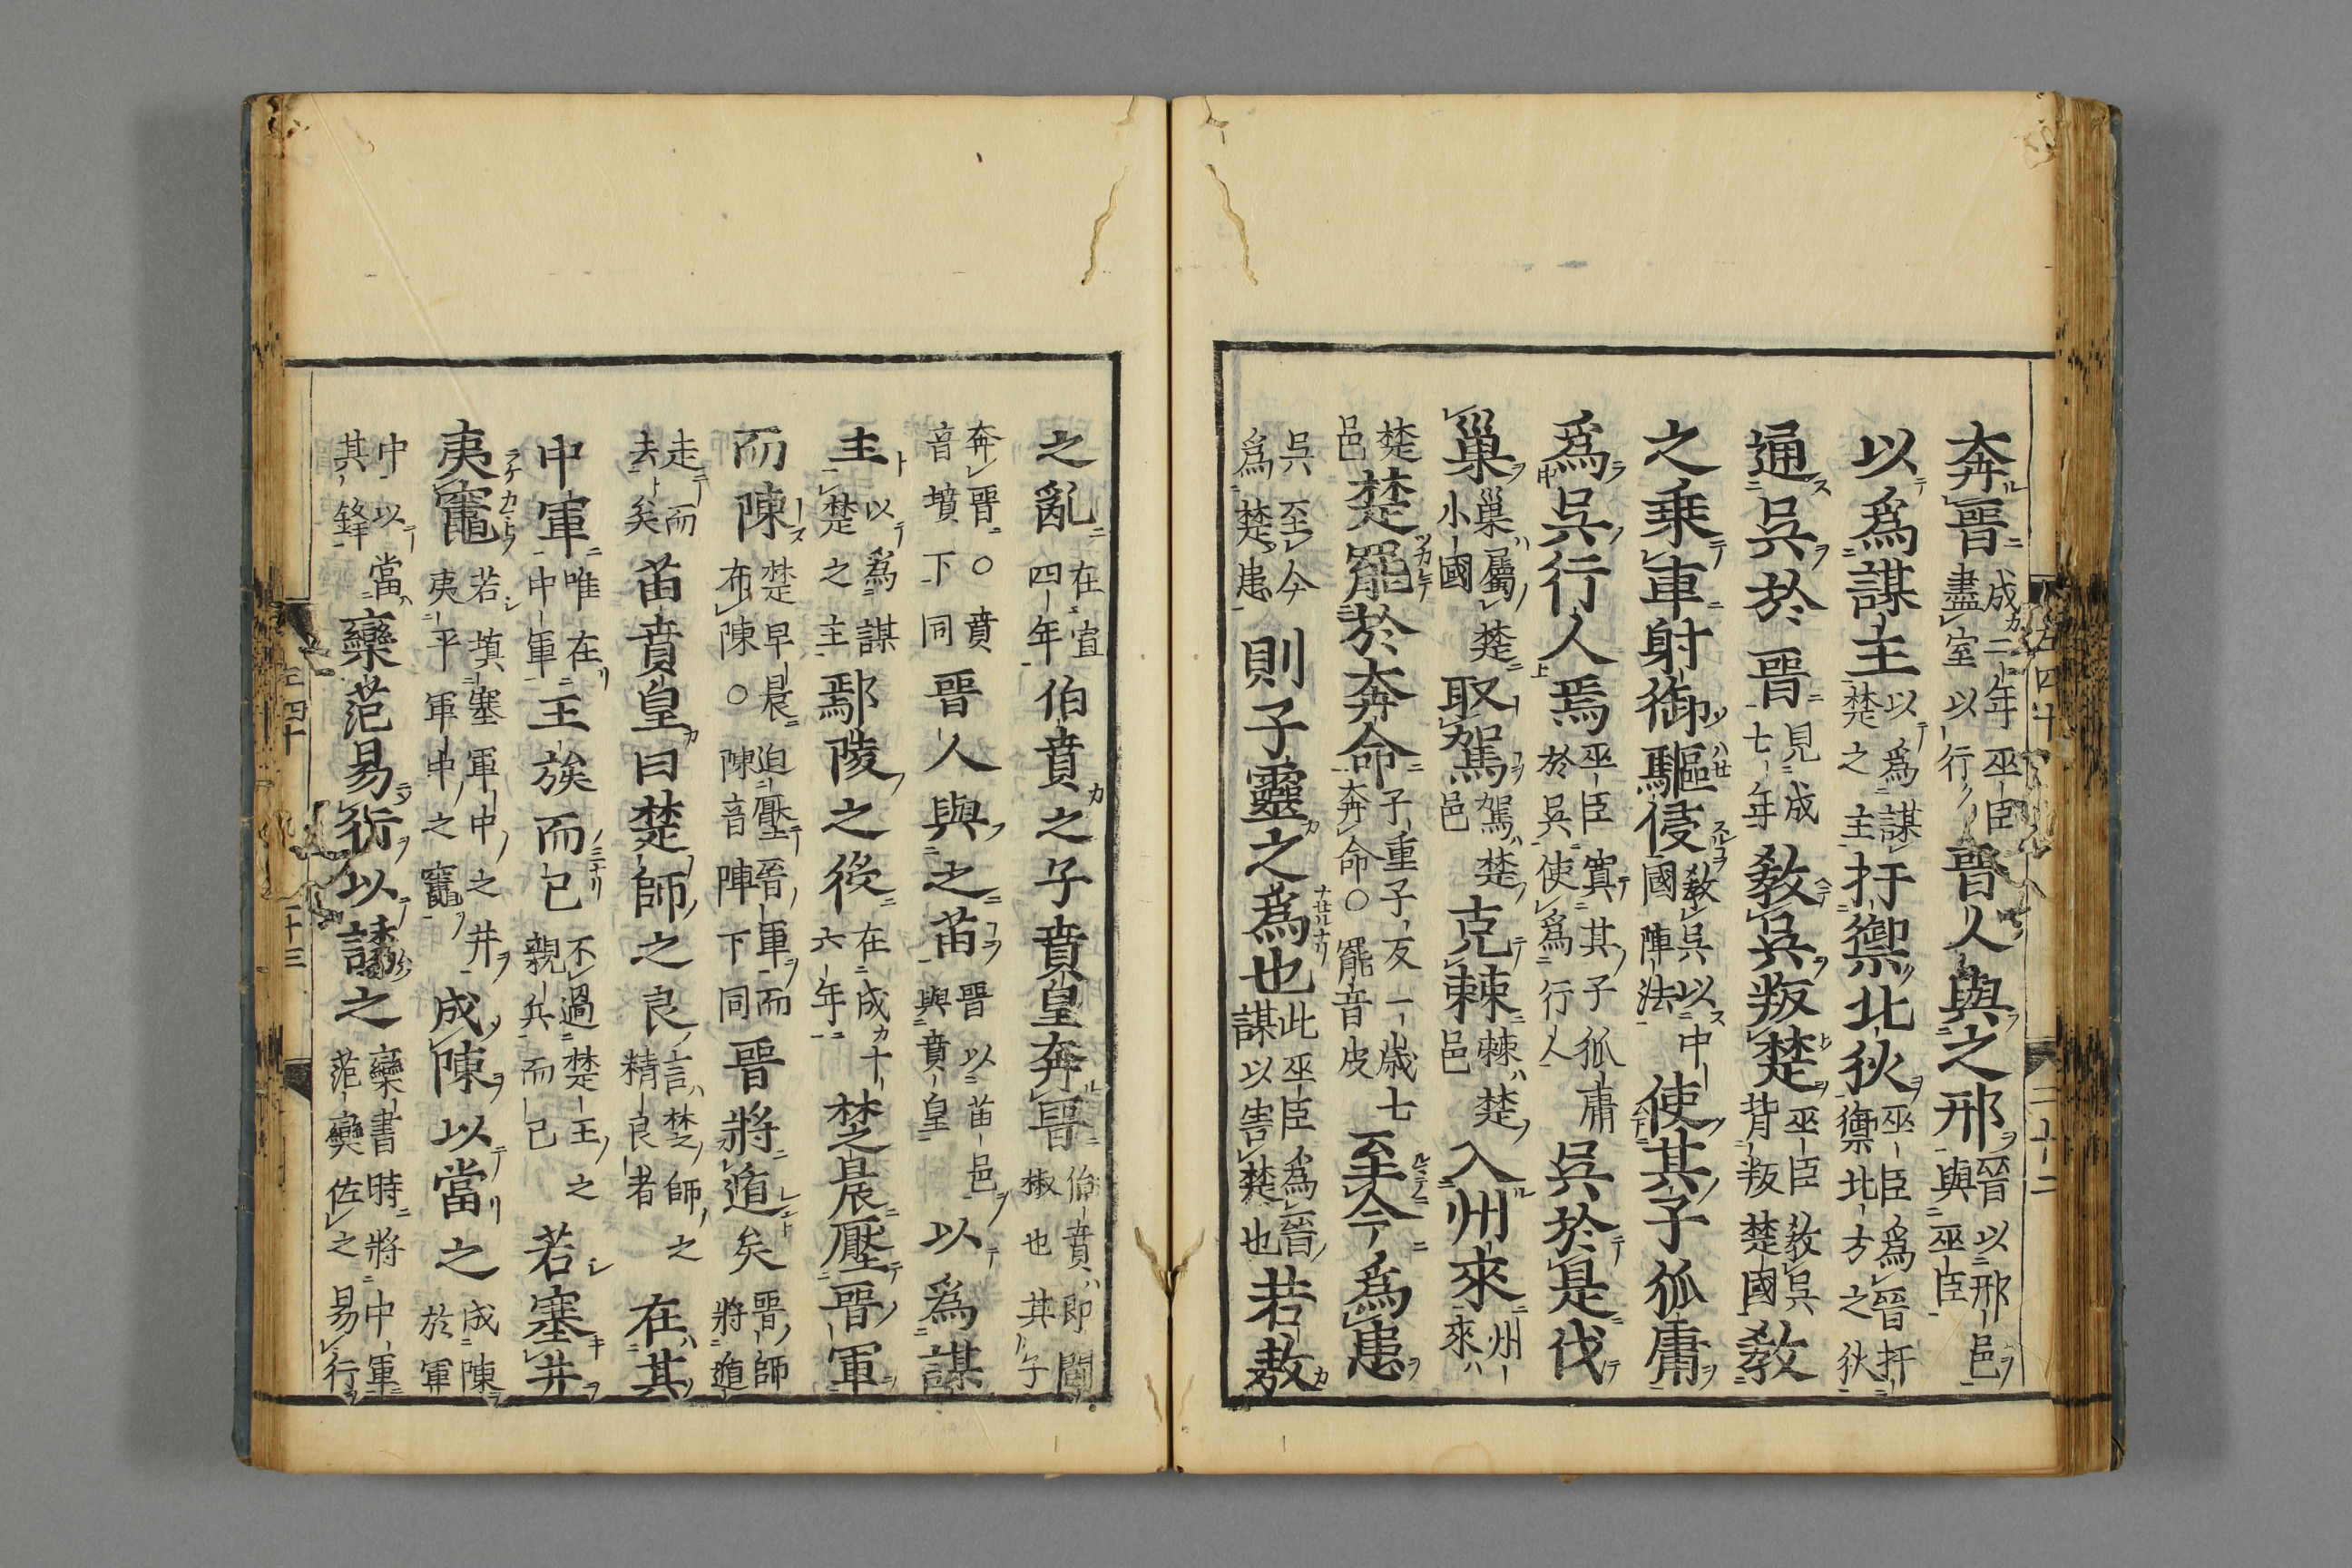 奔晉成二年巫臣盡室以行晉人與之邢晉以邢邑與巫臣
以爲謀主以爲謀楚之主扞禦北狄巫臣爲晉扞禦北方之狄
通吳於晉見成七年敎吳叛楚巫臣敎吳背叛楚國敎
之乘車射御驅侵敎吳以中國陣法使其子狐庸
爲吳行人焉巫臣寘其子狐庸於吳使爲行人吳於是伐
巢巢屬楚小國取駕駕楚邑克棘棘楚邑入州來州來
楚邑楚罷於奔命子重子反一歳七奔命○罷音皮至今爲患
吳至今爲楚患則子靈之爲也此巫臣爲晉謀以害楚也若敖
之亂在宣四年伯賁之子賁皇奔晉伯賁即鬭椒也其子
奔晉○賁音墳下同晉人與之苗晉以苗邑與賁皇以爲謀
主以爲謀楚之主鄢陵之役在成十六年楚晨壓晉軍
而陳楚早晨迫壓晉軍而布陳○陳音陣下同晉將遁矣晉師將遁
走而去矣苗賁皇曰楚師之良言楚師之精良者在其
中軍唯在中軍王族而已不過楚王之親兵而已若塞井
夷竈若填塞軍中之井夷平軍中之竈成陳以當之成陳於軍
中以當其鋒欒范易行以誘之欒書時將中軍范欒佐之易行